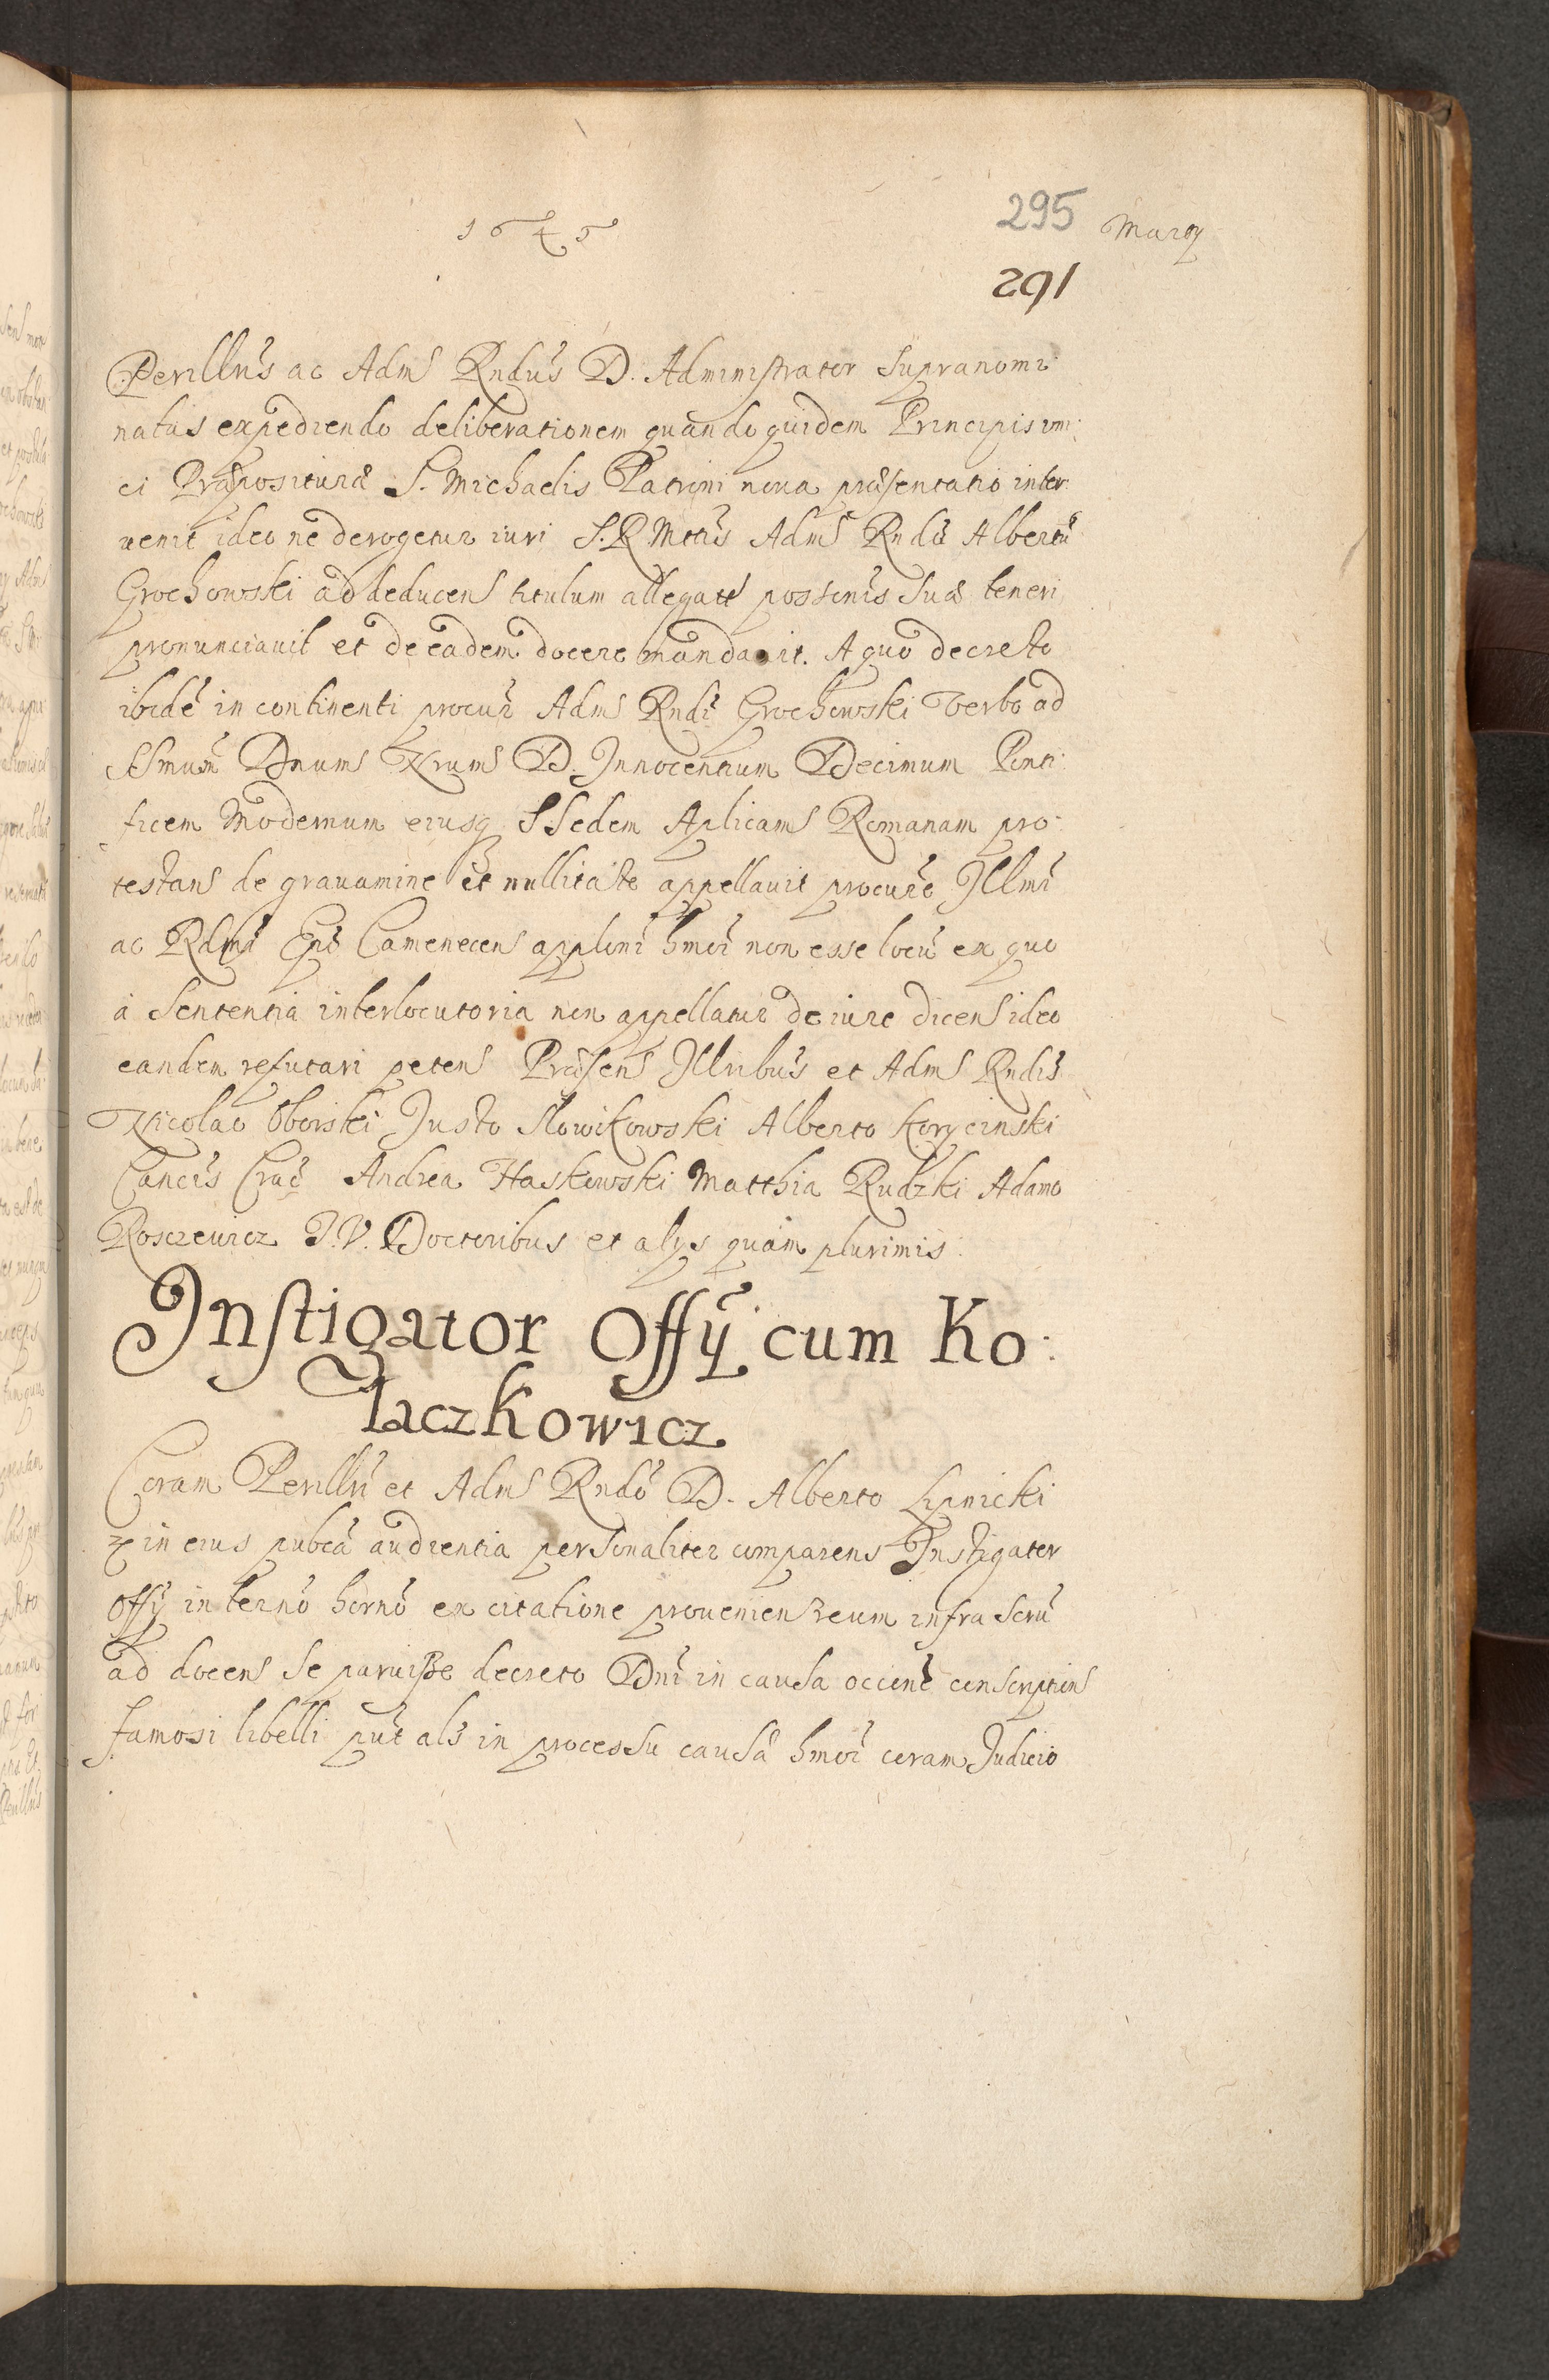 1645
295 Martij
291
Perillus ac Adms Rndus D. Administrator Supranomi:
natus expediendo deliberationem quando quidem Principis
ei Præposituræ S. Michaelis Patroni nova præsentatio inter:
uenit ideo ne derogetur iuri S. R. Mttis Adms Rndũ Albertũ
Grochowski ad deducens titulum allegatæ possonis Suæ teneri
pronunciauit et de eadem docere mandauit. A quo decreto
ibidẽ in continenti procur Adms Rndi Grochowski Verbo ad
SSmum Dnum Nrum D. Innocentium Decimum Ponti:
ficem Modernum eiusq SSedem Aplicam Romanam pro:
testans de grauamine et nullitate appellauit procure Illmi
ac Rdmi Epi Camenecens applõni hmoi non esse locũ ex quo
à Sententia interlocutoria non appellatur de iure dicens ideo
eandem refutari petens Præsen Illribus et Adms Rndis
Nicolao Oborski Justo Slowikowski Alberto Korycinski
Cancis Crac Andrea Haskowski Matthia Rudzki Adamo
Rosczewicz J. V. Doctoribus et alys quàm plurimis:
Instigator Offy cum Ko:
laczkowicz
Coram Perillri et Adms Rndo D. Alberto Lipnicki
in eius pubca audientia personaliter comparens Instigator
Offy in terno horno ex citatione prouenien reum infra scrũ
ad docens se paruisse decreto Dni in causa occone conscriptions
famosi libelli put als in processu causæ hmoi coram Judicio